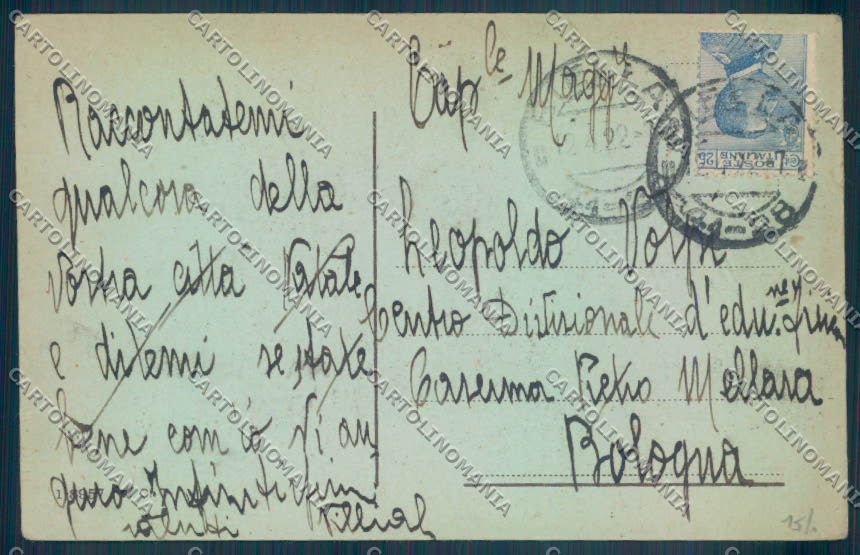 Raccontatemi
qualcosa della
vostra città Natale
e ditemi se state
bene com io Vi au-
guro Infiniti
saluti
Cap.le Magg
Leopoldo Volpi
Centro Divisionale d'edu.ne
Caserma Pietro Mellara
Bologna
POSTE ITALIANE
25
15/.
CARTOLINOMANIA